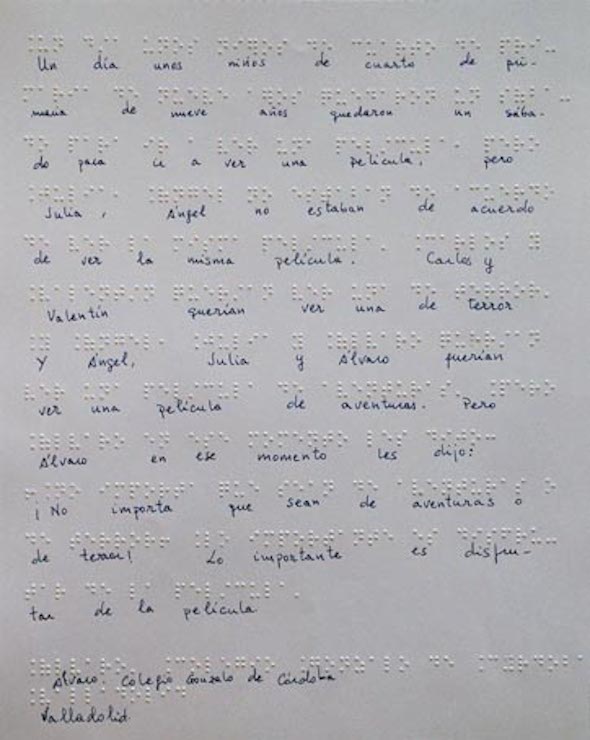 Un día unos niños de cuarto de pri-
maria de nueve años quedaron un sába-
do para ir a ver una película, pero
Julia, Ángel no estaban de acuerdo
de ver la misma película. Carlos y
Valentín querían ver una de terror
Y Ángel, Julia y Álvaro querían
ver una película de aventuras. Pero
Álvaro en ese momento les dijo:
¡No importa que sean de aventuras o
de terror! Lo importante es disfru-
tar de la película
Álvaro. Colegio Gonzalo de Córdoba
Valladolid.